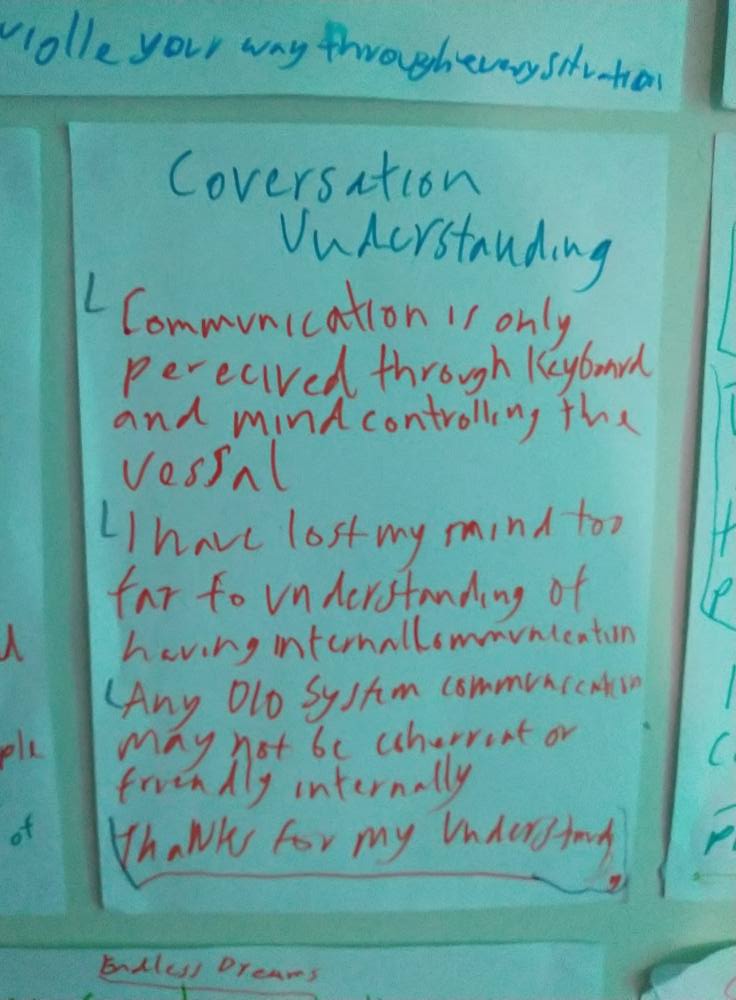 your way through every situation
Coversation
Understanding
Communication is only
perecived through Keyboard
and mind controlling the
vessal
I have lost my mind too
far to understanding of
having internal communication
Any Old System communication
may not be coherrent or
friendly internally
Thanks for my Understandg
ple
of
Endless Dreams